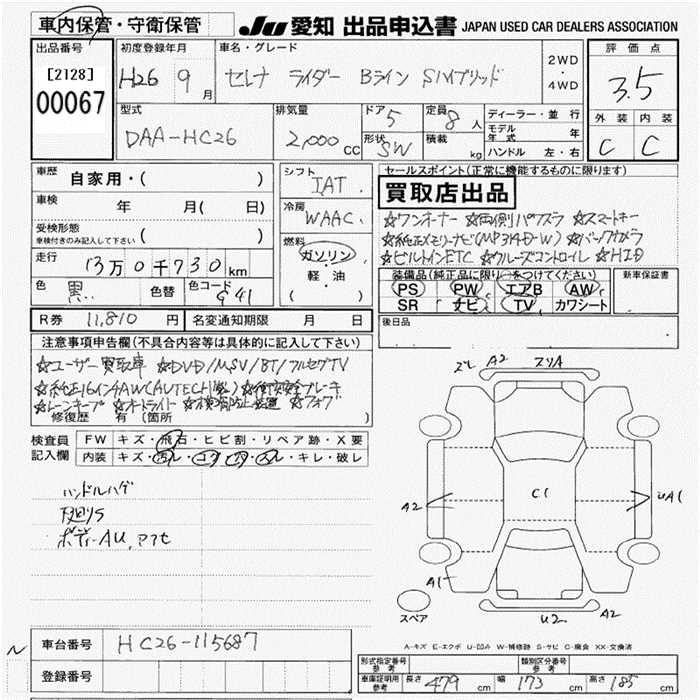 車内保管・守衛保管
JU 愛知 出品申込書 JAPAN USED CAR DEALERS ASSOCIATION
出品番号
[2128]
00067
初度登録年月
H26 9月
車名・グレード
セレナ ライダー Bライン Sハイブリッド
2WD
・
4WD
評価点
3.5
外装 内装
C C
型式
DAA-HC26
排気量
2,000 CC
ドア 5
形状 SW
定員 8人
積載 kg
ディーラー・並行
モデル年式 年
ハンドル 左・右
車歴 自家用・( )
車検 年 月( 日)
受検形態
車検付きのみ記入して下さい ( )
走行 13万0千730km
色 黒
色替
色コード G41
シフト
IAT
冷房
WAAC
燃料
ガソリン
・
軽・油
( )
セールスポイント(正常に機能するものに限ります)
買取店出品
☆ワンオーナー ☆両側パワスラ ☆スマートキー
☆純正メモリーナビ(MP314D-W) ☆バックカメラ
☆ビルトインETC ☆クルーズコントロイル ☆HID
装備品(純正品に限り○をつけてください)
PS PW エアB AW
SR ナビ TV カワシート
新車保証書
後日品
R券 11,810 円
名変通知期限 月 日
注意事項申告欄(不具合内容等は具体的に記入して下さい)
☆ユーザー買取車 ☆DVD/MSV/BT/フルセグTV
☆純正16インAW(AUTECH) ☆衝突安全ブレーキ
☆レーンキープ ☆オートライト ☆横滑防止装置 ☆フォグ
修復歴 有 (箇所 )
検査員
記入欄
FW キズ・飛石・ヒビ割・リペア跡・X要
内装 キズ・汚レ・コゲ・穴・スレ・キレ・破レ
ハンドルハゲ
下廻りS
ボディーAU,アアセ
A2 スリA
C1
A2
UA1
A1
U2 A2
スペア
A-キズ E-エクボ U-凹み W-補修跡 S-サビ C-腐食 XX-交換済
車台番号 HC26-115687
登録番号
形式指定番号
参考
類別区分番号
参考
車庫証明用
参考
長さ 479 cm 幅 173 cm 高さ 185 cm